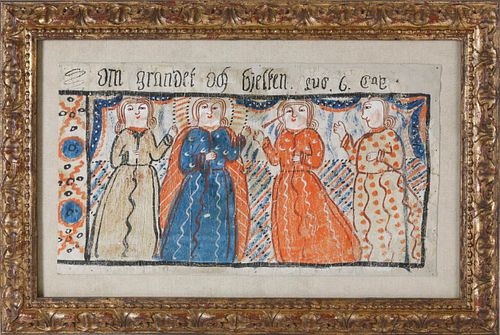 Om grandet och bjelken. Luc. 6. Cap.